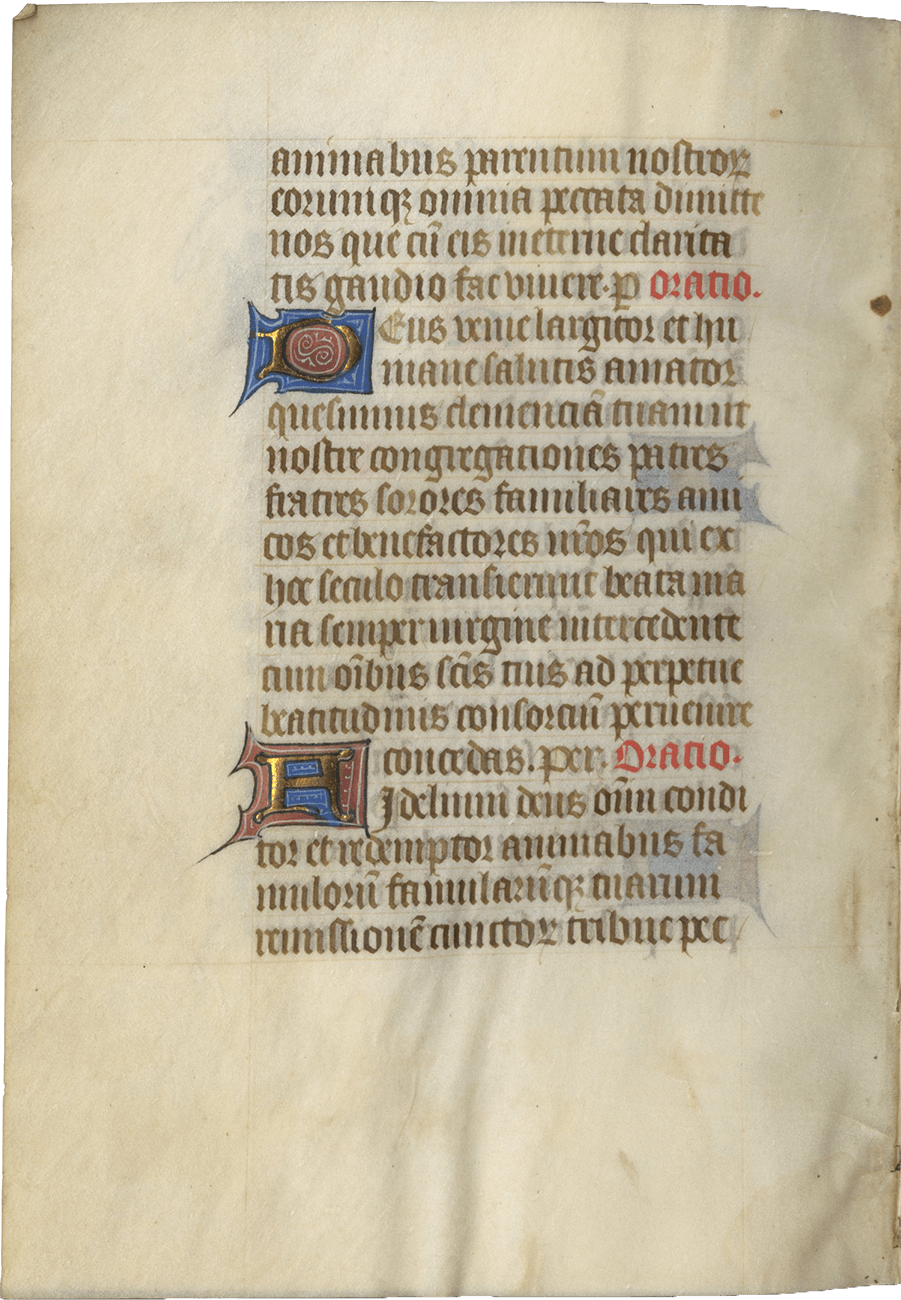 animabus parentum nostroꝝ
eorumqꝫ omnia peccata dimitte
nos que cū eis ineterne clarita
tis gaudio fac viuere. ꝑ Oratio.
DEus venie largitor et hu
mane salutis amator
quesumus clemenciā tuam ut
nostre congregationes patres
fratres sorores familiaires ami
cos et benefactores nr̄os qui ex
hoc seculo transierunt beata ma
ria semper uirgine intercedente
cum oībus sc̄is tuis ad perpetue
beatitudinis consorciū peruenire
concedas. Per. Oratio.
FIdelium deus oīm condi
tor et redemptor animabus fa
mulorū famularūqꝫ tuarum
remissionē cunctoꝝ tribue pec